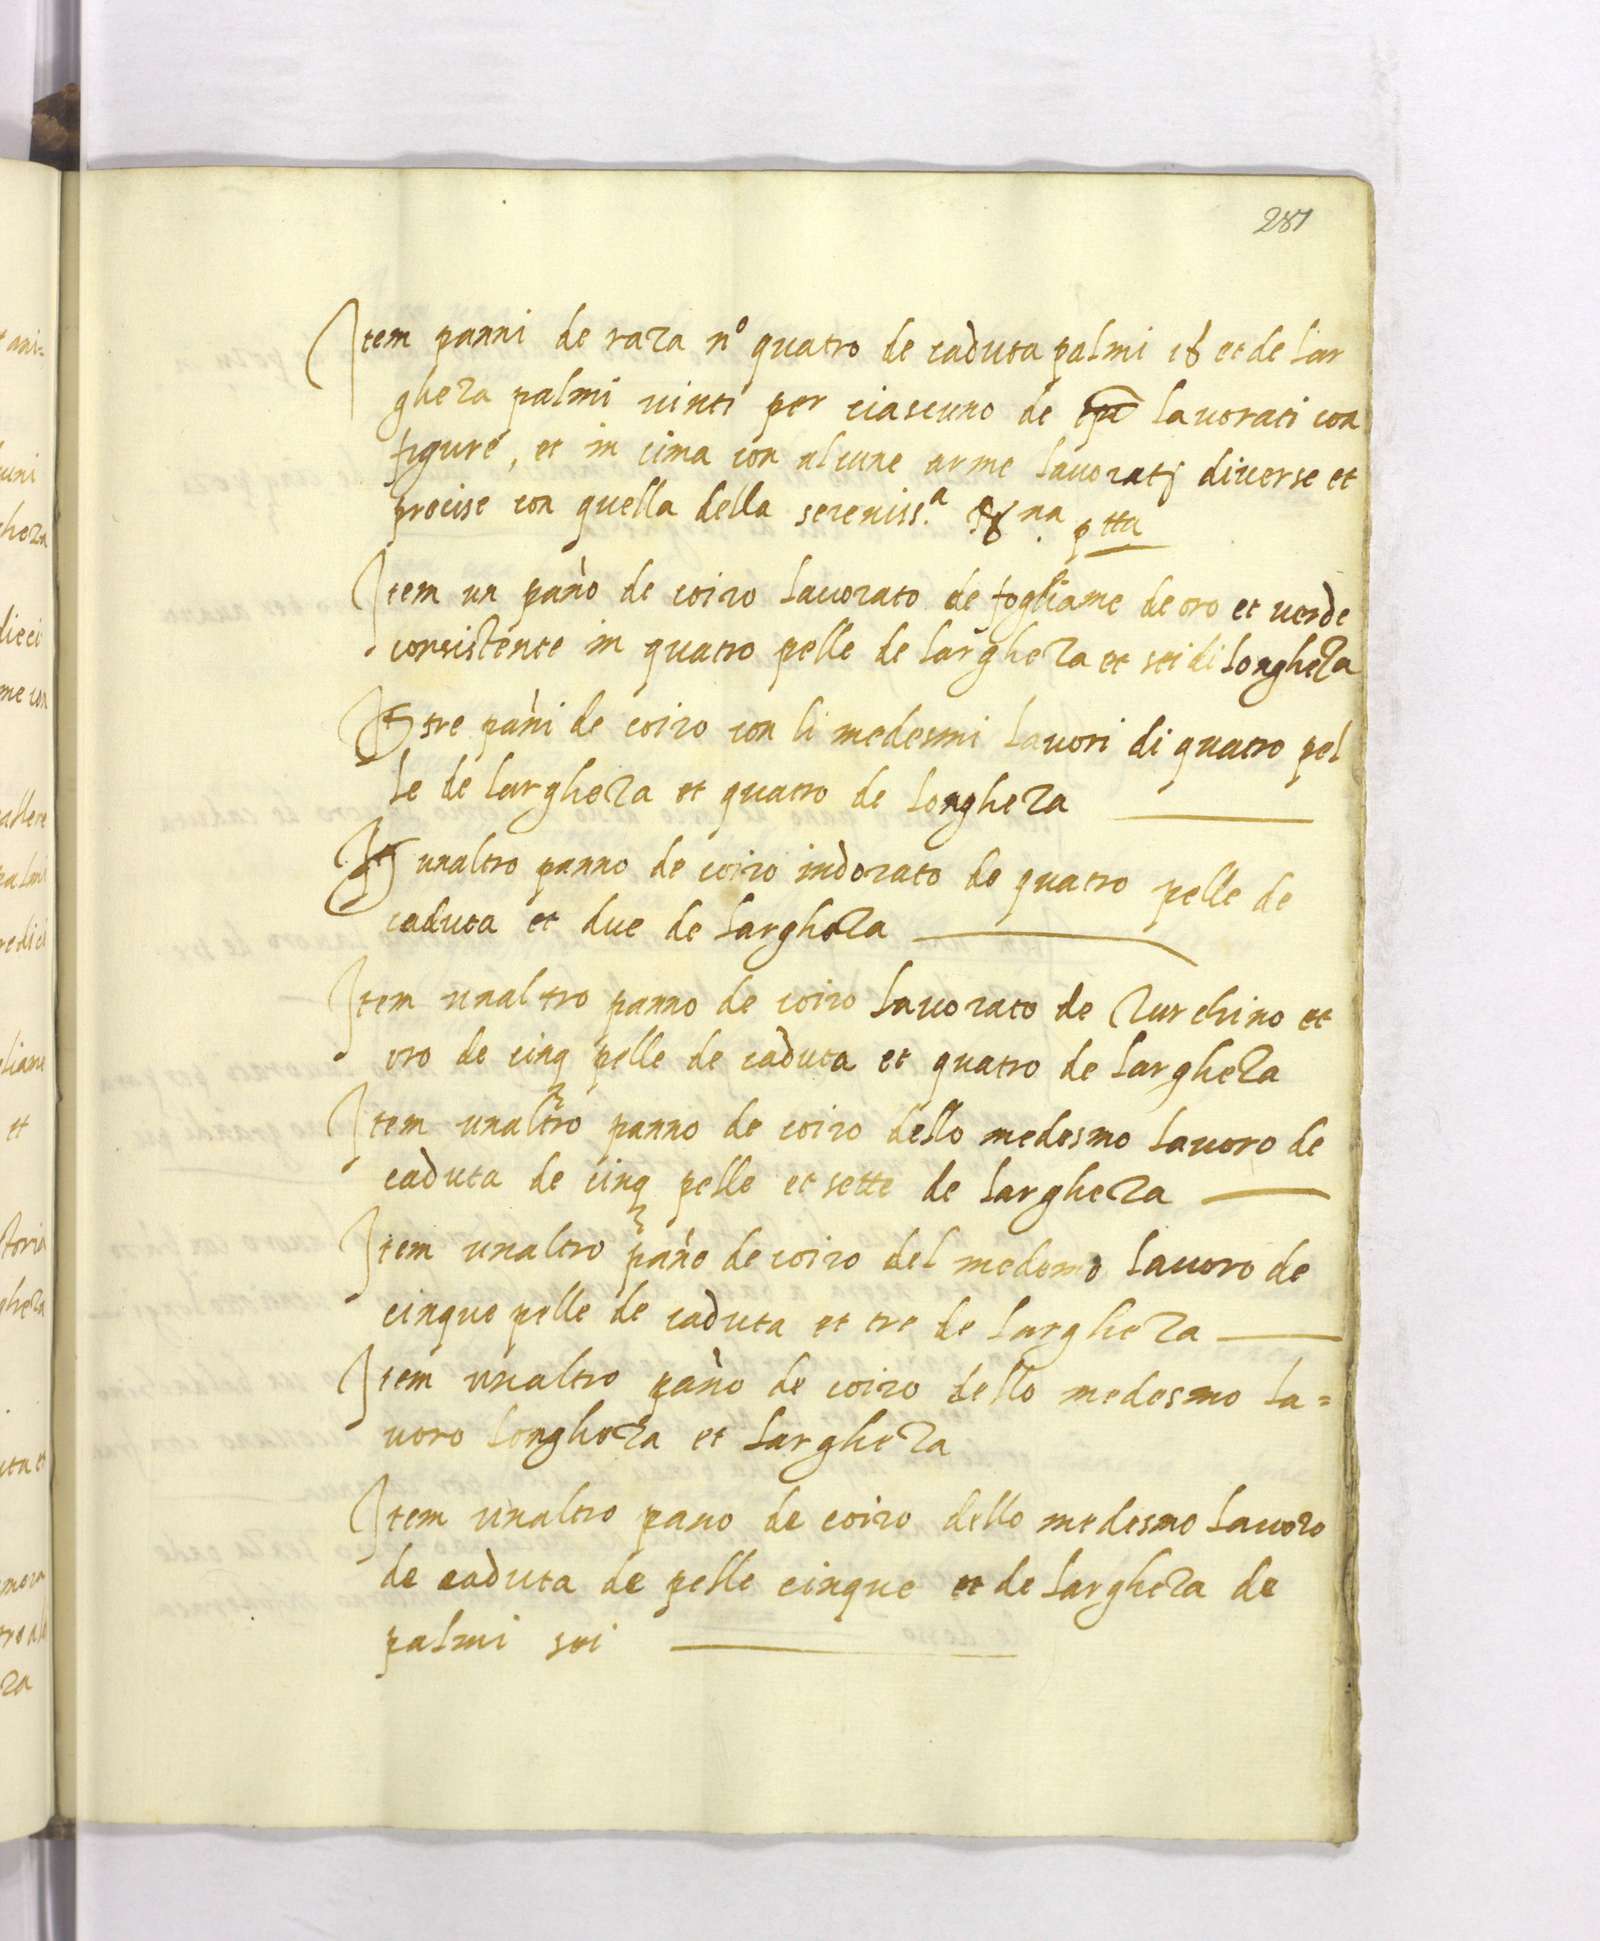 281
Item panni de raza n° quatro de caduta palmi 18 et de lar
gheza palmi vinti per ciascuno de lavorati con
figure, et in cima con alcune arme lavorati diverse et
precise con quella della sereniss.a R.na p.tta
Item un pano de coiro lavorato de fogliame de oro et verde
consistente in quatro pelle de largheza et sei di longheza
It tre pani de coiro con li medesmi lavori di quatro pel
le de largheza et quatro de longheza
It unaltro panno de coiro indorato de quatro pelle de
caduta et due de largheza
Item unaltro panno de coiro lavorato de turchino et
oro de cinq pelle de caduta et quatro de largheza
Item unaltro panno de coiro dello medesmo lavoro de
caduta de cinq pelle et sette de largheza
Item unaltro pano de coiro del medemo lavoro de
cinque pelle de caduta et tre de largheza
Item unaltro pano de coiro dello medesmo la=
voro longheza et largheza
Item unaltro pano de coiro dello medesmo lavoro
de caduta de pelle cinque et de largheza de
palmi sei